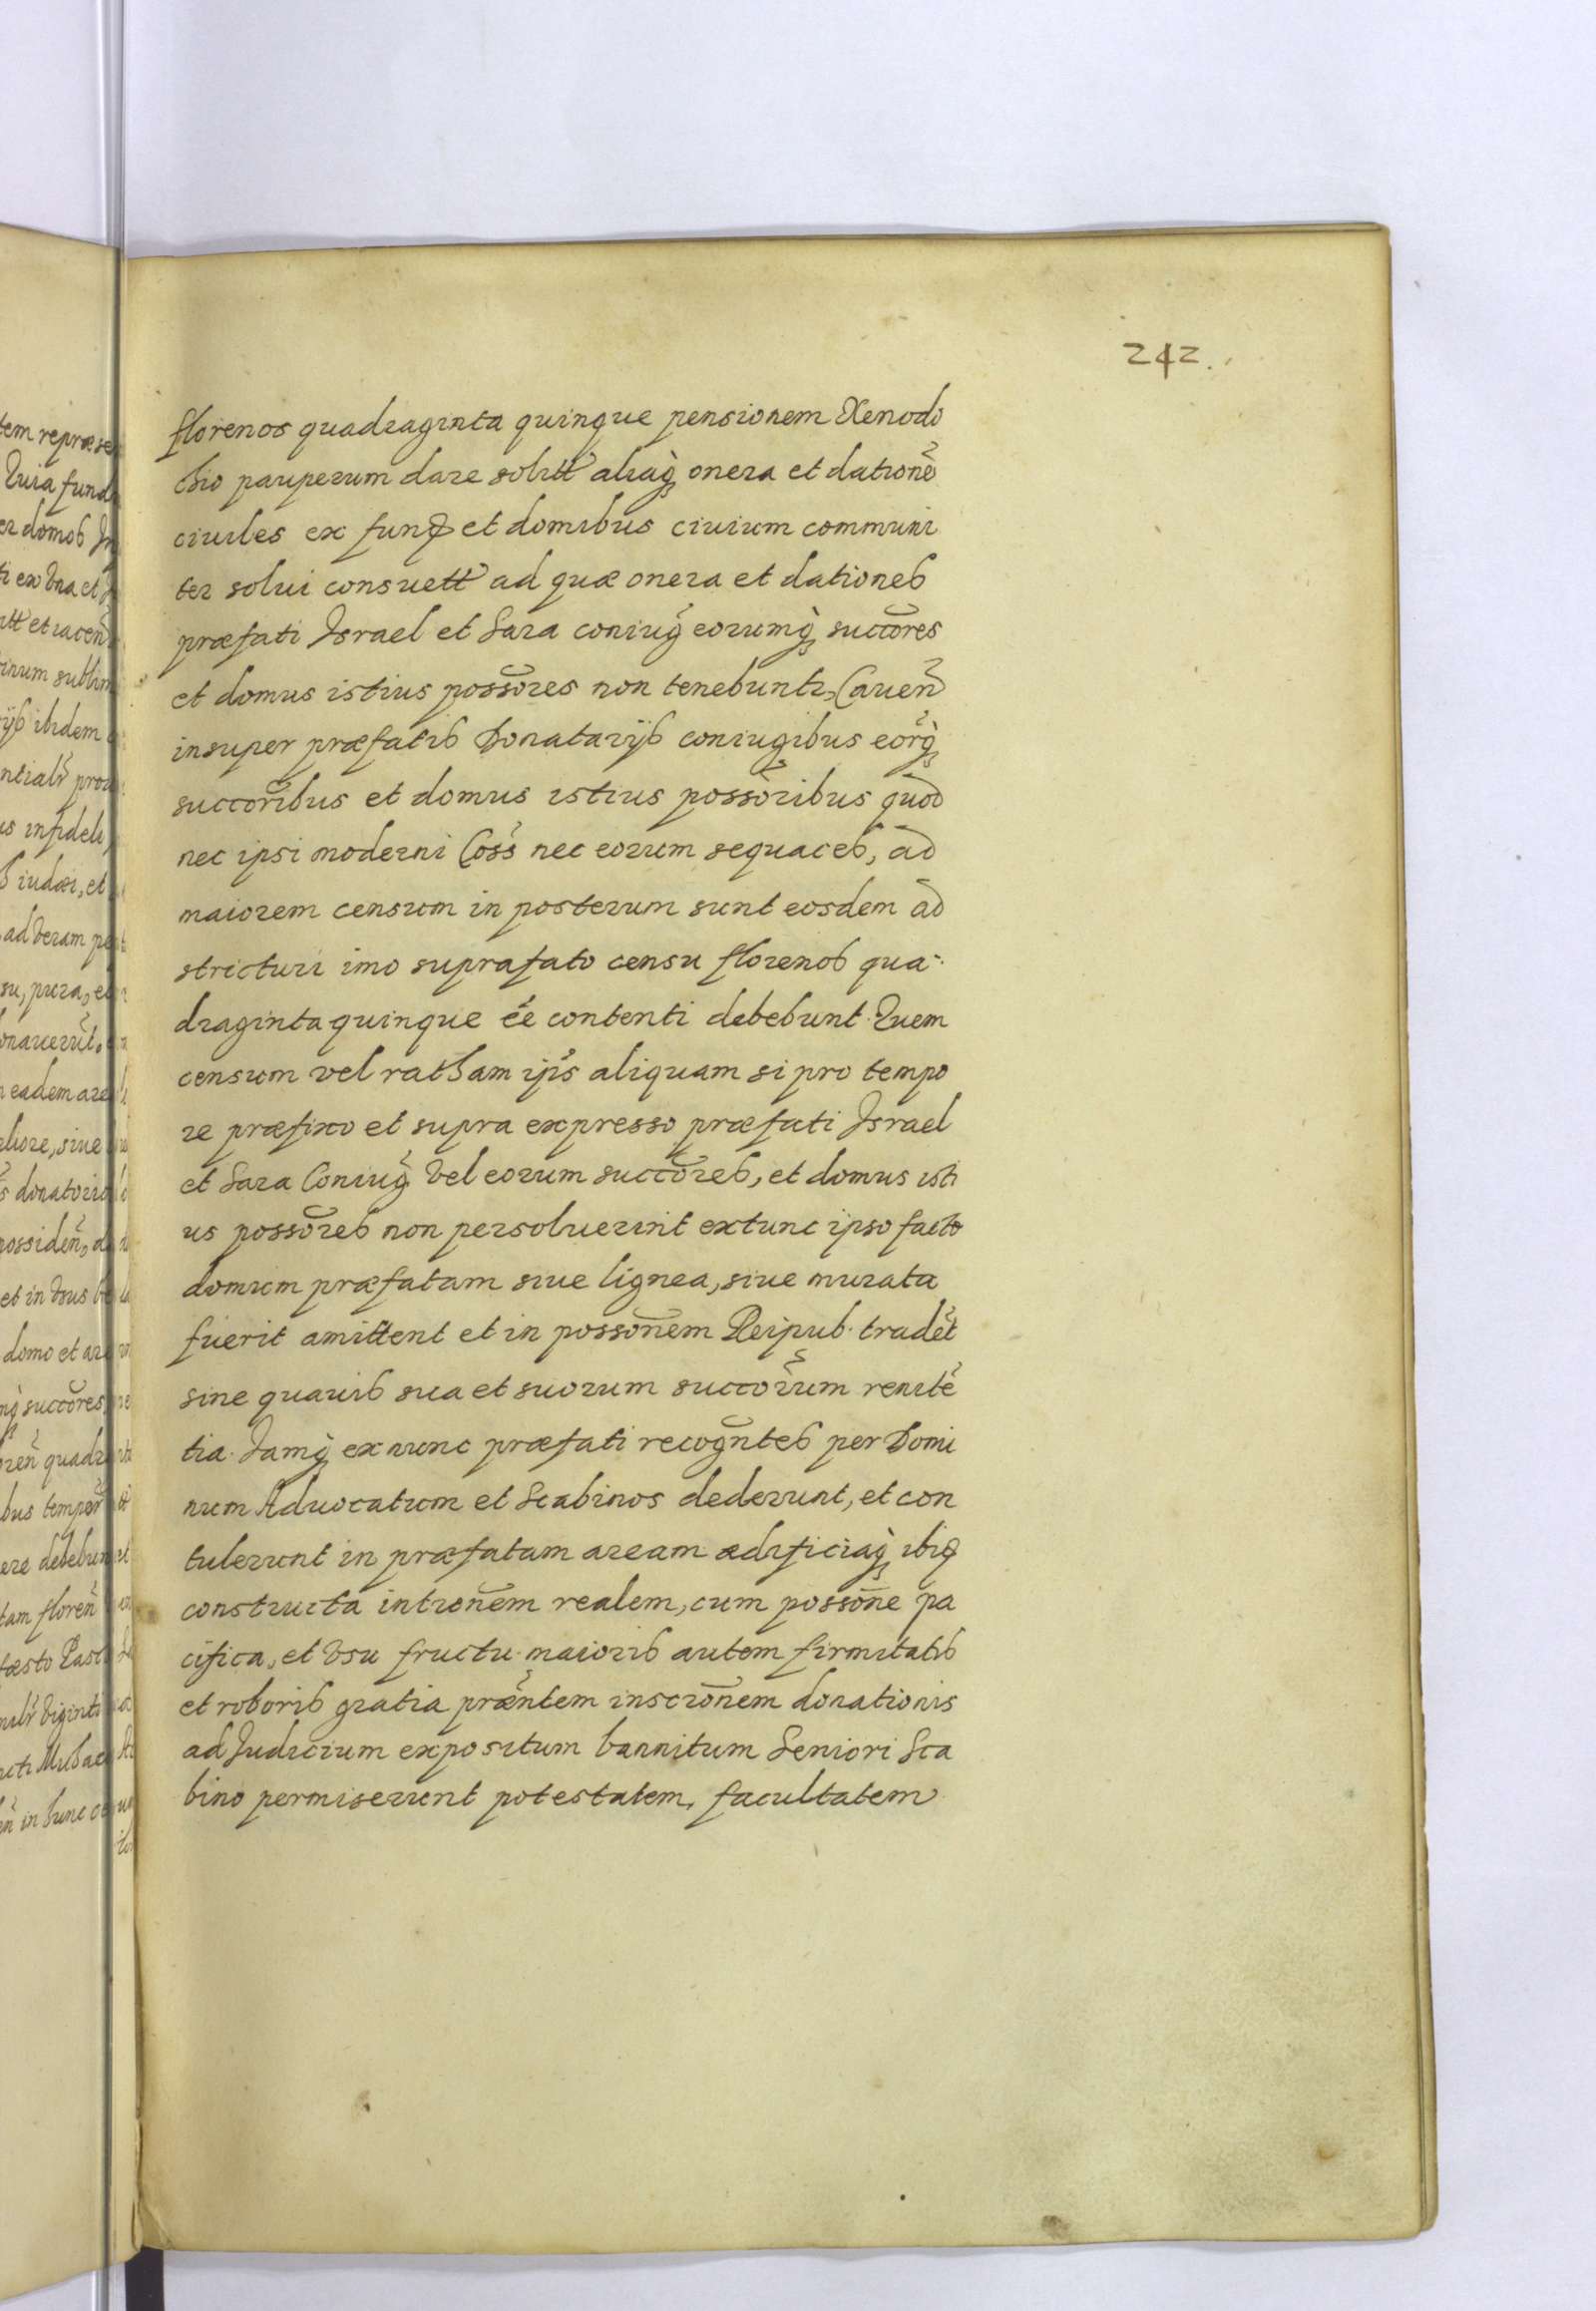 242.
florenos quadraginta quinque pensionem Xenodo
chio pauperum dare solitt aliaq́ onera et dationē
ciuiles ex fund et domibus ciuium communi
ter solui consuett ad quæ onera et dationes
præfati Israel et Sara coniug̃ eorumq́ succores
et domus istius possores non tenebuntr, Cauen̄
insuper præfatis Donatarijs coniugibus eorq́
succoribus et domus istius possoribus quòd
nec ipsi moderni Coss nec eorum sequaces, ad
maiorem censum in posterum sunt eosdem ad
stricturi imo suprafato censu florenos qua-
draginta quinque ēē contenti debebunt. Quem
censum vel ratham ips̄ aliquam si pro tempo
re præfixo et supra expresso præfati Israel
et Sara Coniug̃ vel eorum succores, et domus isti
us possores non persoluerint extunc ipso facto
domum præfatam siue lignea, siue murata
fuerit amittent et in possonem Reipub. tradēt
sine quauis sua et suorum succorum renitē
tia. Iamq́ ex nunc præfati recogntes per Domi
num Aduocatum et Scabinos dederunt, et con
tulerunt in præfatam aream ædificiaq́ ibid
constructa intronem realem, cum possone pa
cifica, et vsu fructu. maioris autem firmitatis
et roboris gratia præntem inscronem donationis
ad Iudicium expositum bannitum Seniori Sca
bino permiserunt potestatem, facultatem